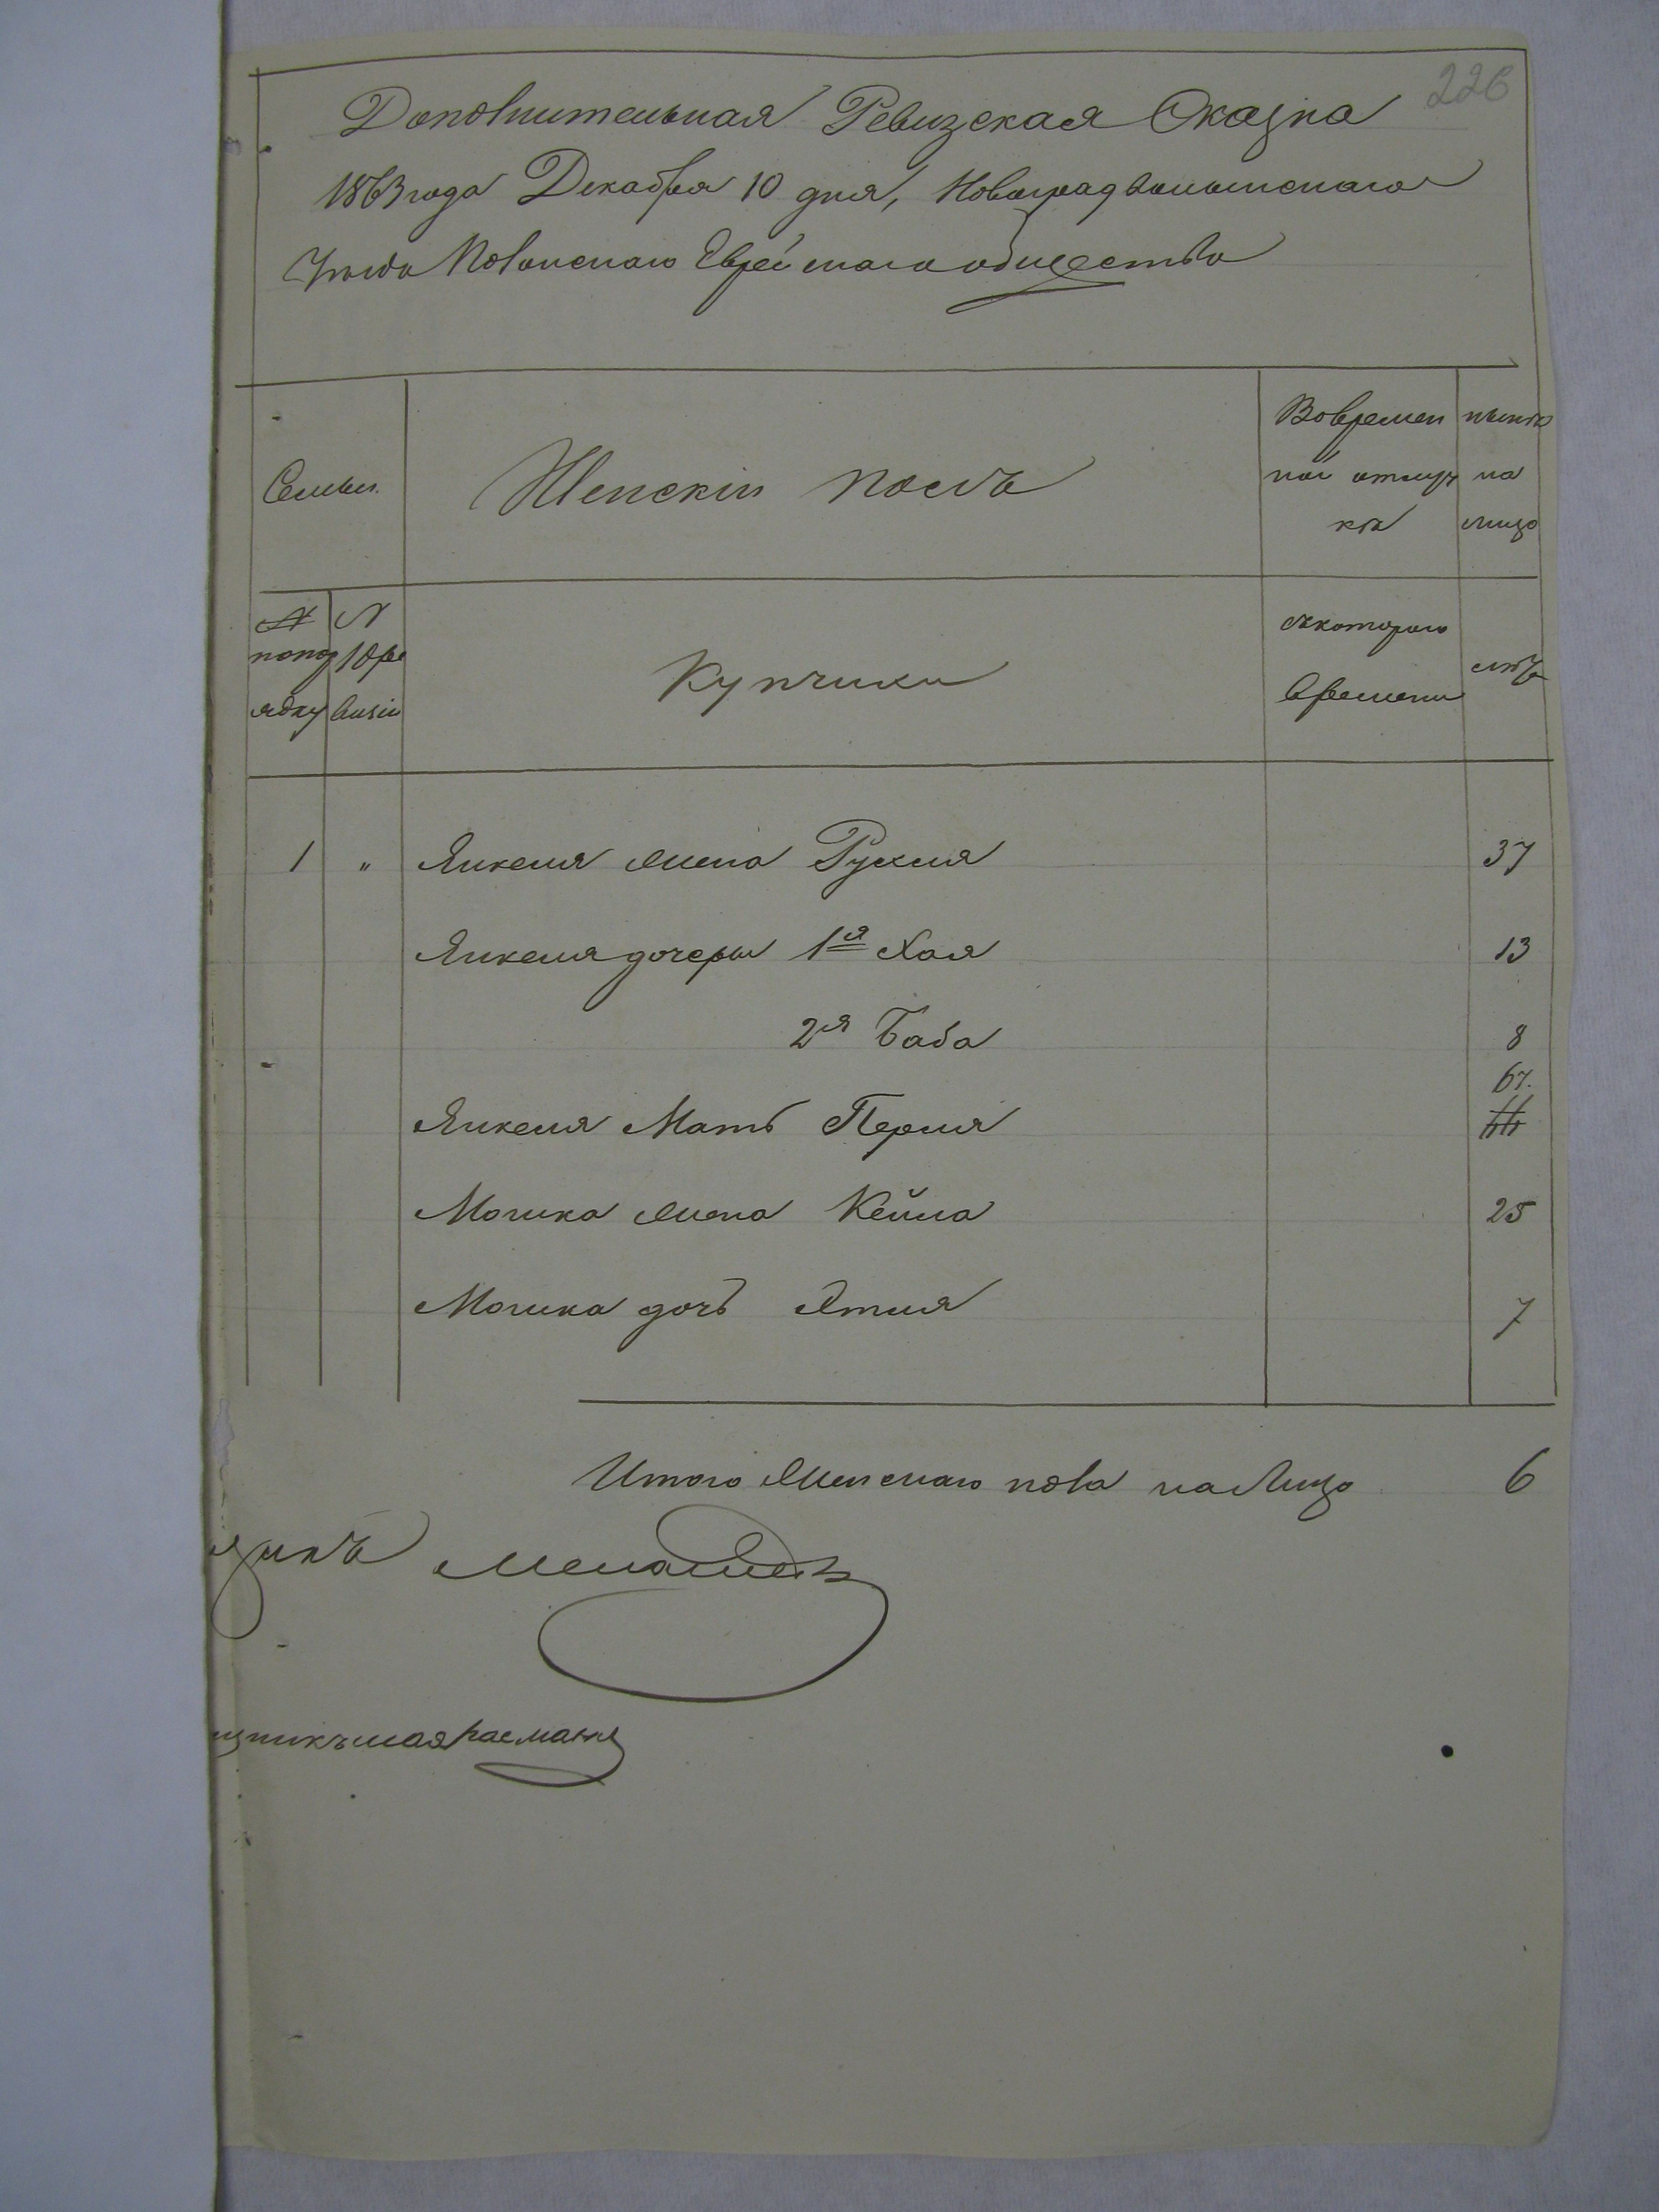 226
Дополнительная Ревизская Сказка
1863 года Декабря 10 дня, Новоградволынскаго
Уѣзда Полонскаго Еврейскаго общества
Семьи.
Женскій полъ
Вовремен
ной отлуч
кѣ
нынѣ
на
лицо
№
попор
ядку
№
10 ре
визіи
Купчики
съкотораго
времени
лѣта
1 " Янкеля жена Рухля 37
Янкеля дочеры 1я Хая 13
2я Баба 8
67.
Янкеля Мать Перля
Мошка жена Кейла 25
Мошка дочь Этля 7
Итого женскаго пола на лицо 6